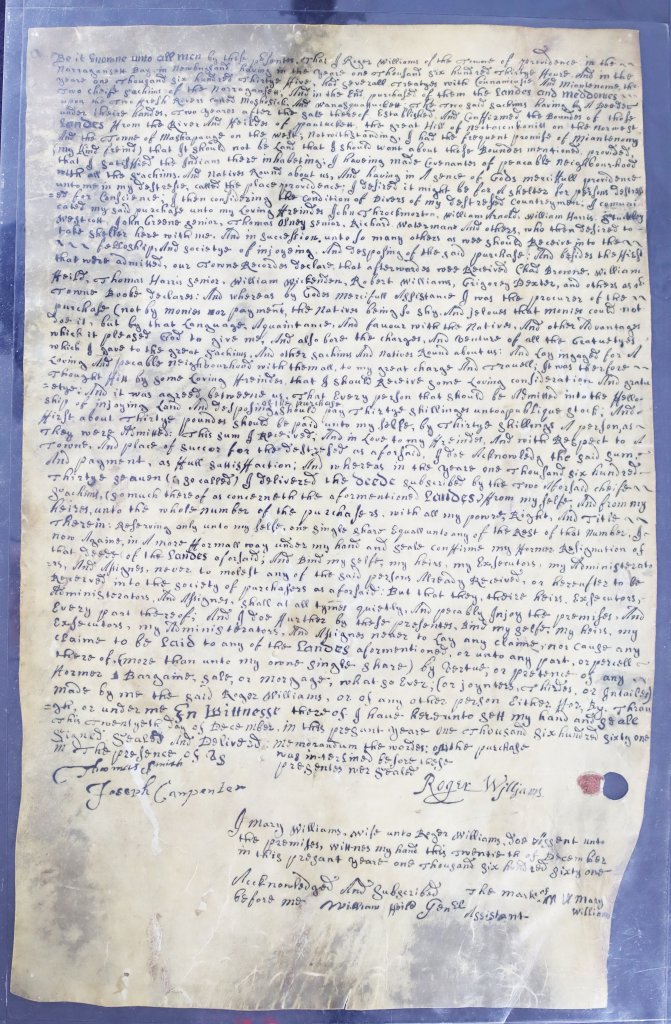 Be it knowne unto all men by these presents, That I Roger Williams of the Towne of providence in the
Narragansett Bay in Newengland having in the yeare one Thousand six hundred Thirtye Foure, And in the
yeare one Thousand six hundred Thirtye Five, had severall Treatyes with Counanicus And Miantenome the
Two cheife sachims of the Narragansett, And in the End purchased of them the Landes and Medowes
upon the Two Fresh Rivers called Moshosick And Wanasquatuckett The Two said sachims having by A Deede
under theire handes, Two yeares after the sale thereof Established And Confirmed the Boundes of those
Landes From the River And Feildes of pawtuckett the great Hill of Neotaconkonitt on the Norwest,
And the Towne of Mashapauge on the west, Notwithstanding I had the frequent promise of Miantenomy
my kind friend that It should not be Land that I should want about those Boundes mentioned, provided
that I sattisfied the Indians there inhabeting, I haveing made Covenantes of peacable Neighbourhood
with all the sachims, And Natives Round about us, And having in A sence of Gods mercifull providence
unto me in my destresse, called the place providence; I desired it might be for A shelter for persons destressed
for Conscience; I then considering the Condition of Divers of my destressed Countreymen, I communi-
cated my said purchase unto my Loving Freindes John Throckmorton, William Arnold, William Harris, Stuckley
westcott, John Greene senior, Thomas Olney senior, Richard Waterman And others, who then desired to
take shelter here with me, And in succession unto so many others as wee should Receive into the
Fellowship, And societye of injoyeing And Desposing of the said purchase; And besides the First
that were admitted, our Towne Recordes declare, that afterwardes wee Received Chad Browne, William
Feild, Thomas Harris senior, William Wickenden, Robert Williams, Grigorey Dexter, and others as our
Towne Booke declares: And whereas by Gods Mercifull Assistance I was the procurer of the
purchase (not by monies nor payment, the Natives being so shy, And jelous that monies could not
doe it, but by that Language, Aquaintance, And favour with the Natives, And other Advantages
which it pleased God to give me, And also bore the charges, And venture of all the Gratuetyes
which I gave to the great sachims, And other sachims And Natives Round about us: And Lay ingaged for A
Loving And pecable neighbourhood with them all, to my great charge And Travell; It was therefore
Thought Fitt by some Loving Freindes, that I should Receive some Loving consideration And gratu-
etye; And it was agreed betweene us, That Every person that should be Admitted into the Fellow-
of the purchase
ship of injoying Land And desposing should pay Thirtye shillinges unto a publique stock; And
First about Thirtye poundes should be paid unto my selfe, by Thirtye shillings A person, as
They were Admitted: This sum I Received, And in Love to my Freindes, And with Respect to A
Towne, And place of succor for the destressed as aforsaid, I doe Acknowledg the said sum,
And payment, as Full sattisfaction; And whereas in the yeare one Thousand six hundred
Thirtye seaven (so called) I delivered the Deede subscribed by the Two Aforsaid cheife
sachims, (so much thereof as concerneth the aformentioned Landes) From my selfe and from my
heires, unto the whole Number of the purchasers, with all my powre, Right, And Title
Therein: Reserving only unto my selfe, one single share Equall unto any of the Rest of that Number, I
now Againe, in A more Formall way under my hand and seale Confirme my Former Resignation of
that deede of the Landes aforsaid; And Bind my selfe, my heirs, my Executors, my Administrato-
rs, And Assignes, never to molest any of the said persons Already Received, or hereafter to be
Received, into the society of purchasers as aforsaid: But that they, theire heirs, Executors,
Administerators, And Assignes, shall at all tymes quietly, And pecably Injoy the premises, And
Every part thereof; And I doe Further by these presentes Bind my selfe, my heirs, my
Executors, my Administerators, And Assignes never to Lay any claime, nor cause any
claime to be Laid to any of the Landes aformentioned, or unto any part, or percell
thereof, (more than unto my owne single share) by vertue, or pretence of any
Former Bargaine, sale, or Morgage, what so Ever; (or joynters, Thirdes, or Intailes)
made by me the said Roger Williams, or of any other person Either For, By, Throu
gh, or under me En Wittnesse thereof I have hereunto sett my hand and seale
This Twenty&eth day of December, in this present yeare one Thousand six hundred sixty one
Signed Sealed And Delivered memorandum the wordes: of the purchase
In the presence of Us was interlined before these
presentes wer sealed
Thomas Smith
Joseph Carpenter
Roger Williams
I Mary Williams, wife unto Roger Williams, doe Assent unto
the premises, wittnes my hand this Twentieth of December
in this present yeare one Thousand six hundred sixty one
Acknowledged And Subscribed The mark of M W Mary
before me William Feild Genll Assistant Williams